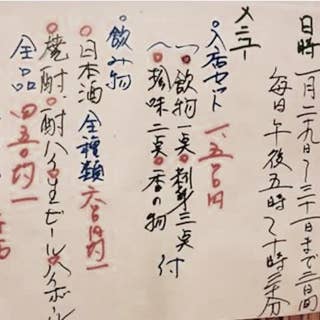 日時 一月二九日〜三十一日まで三日間
毎日午後五時〜十時三十分
メニュー
○入店セット 一、五〇〇円
(一)飲物一点 刺身三点 付
(一)珍味二点 香の物
○飲み物
○日本酒 全種類 六百円均一
○焼酎○酎ハイ○生ビール○ハイボール
全品 四五〇均一